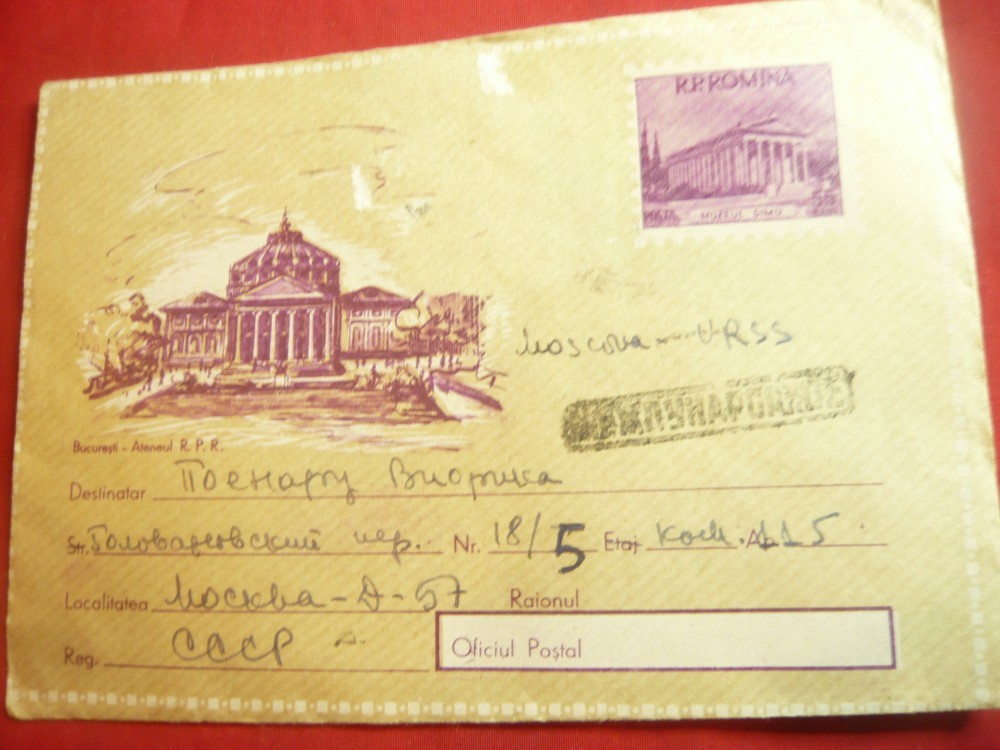 R.P.ROMINA
POSTA MUZEUL SIMU 55 BANI
Moscova URSS
МЕЖДУНАРОДНОЕ
București - Ateneul R. P. R.
Destinatar Поенару Виорика
Str. Головановский пер. Nr. 18/5 Etaj Ap. 115
Localitatea Москва-А-57 Raionul
Reg. СССР Oficiul Poștal